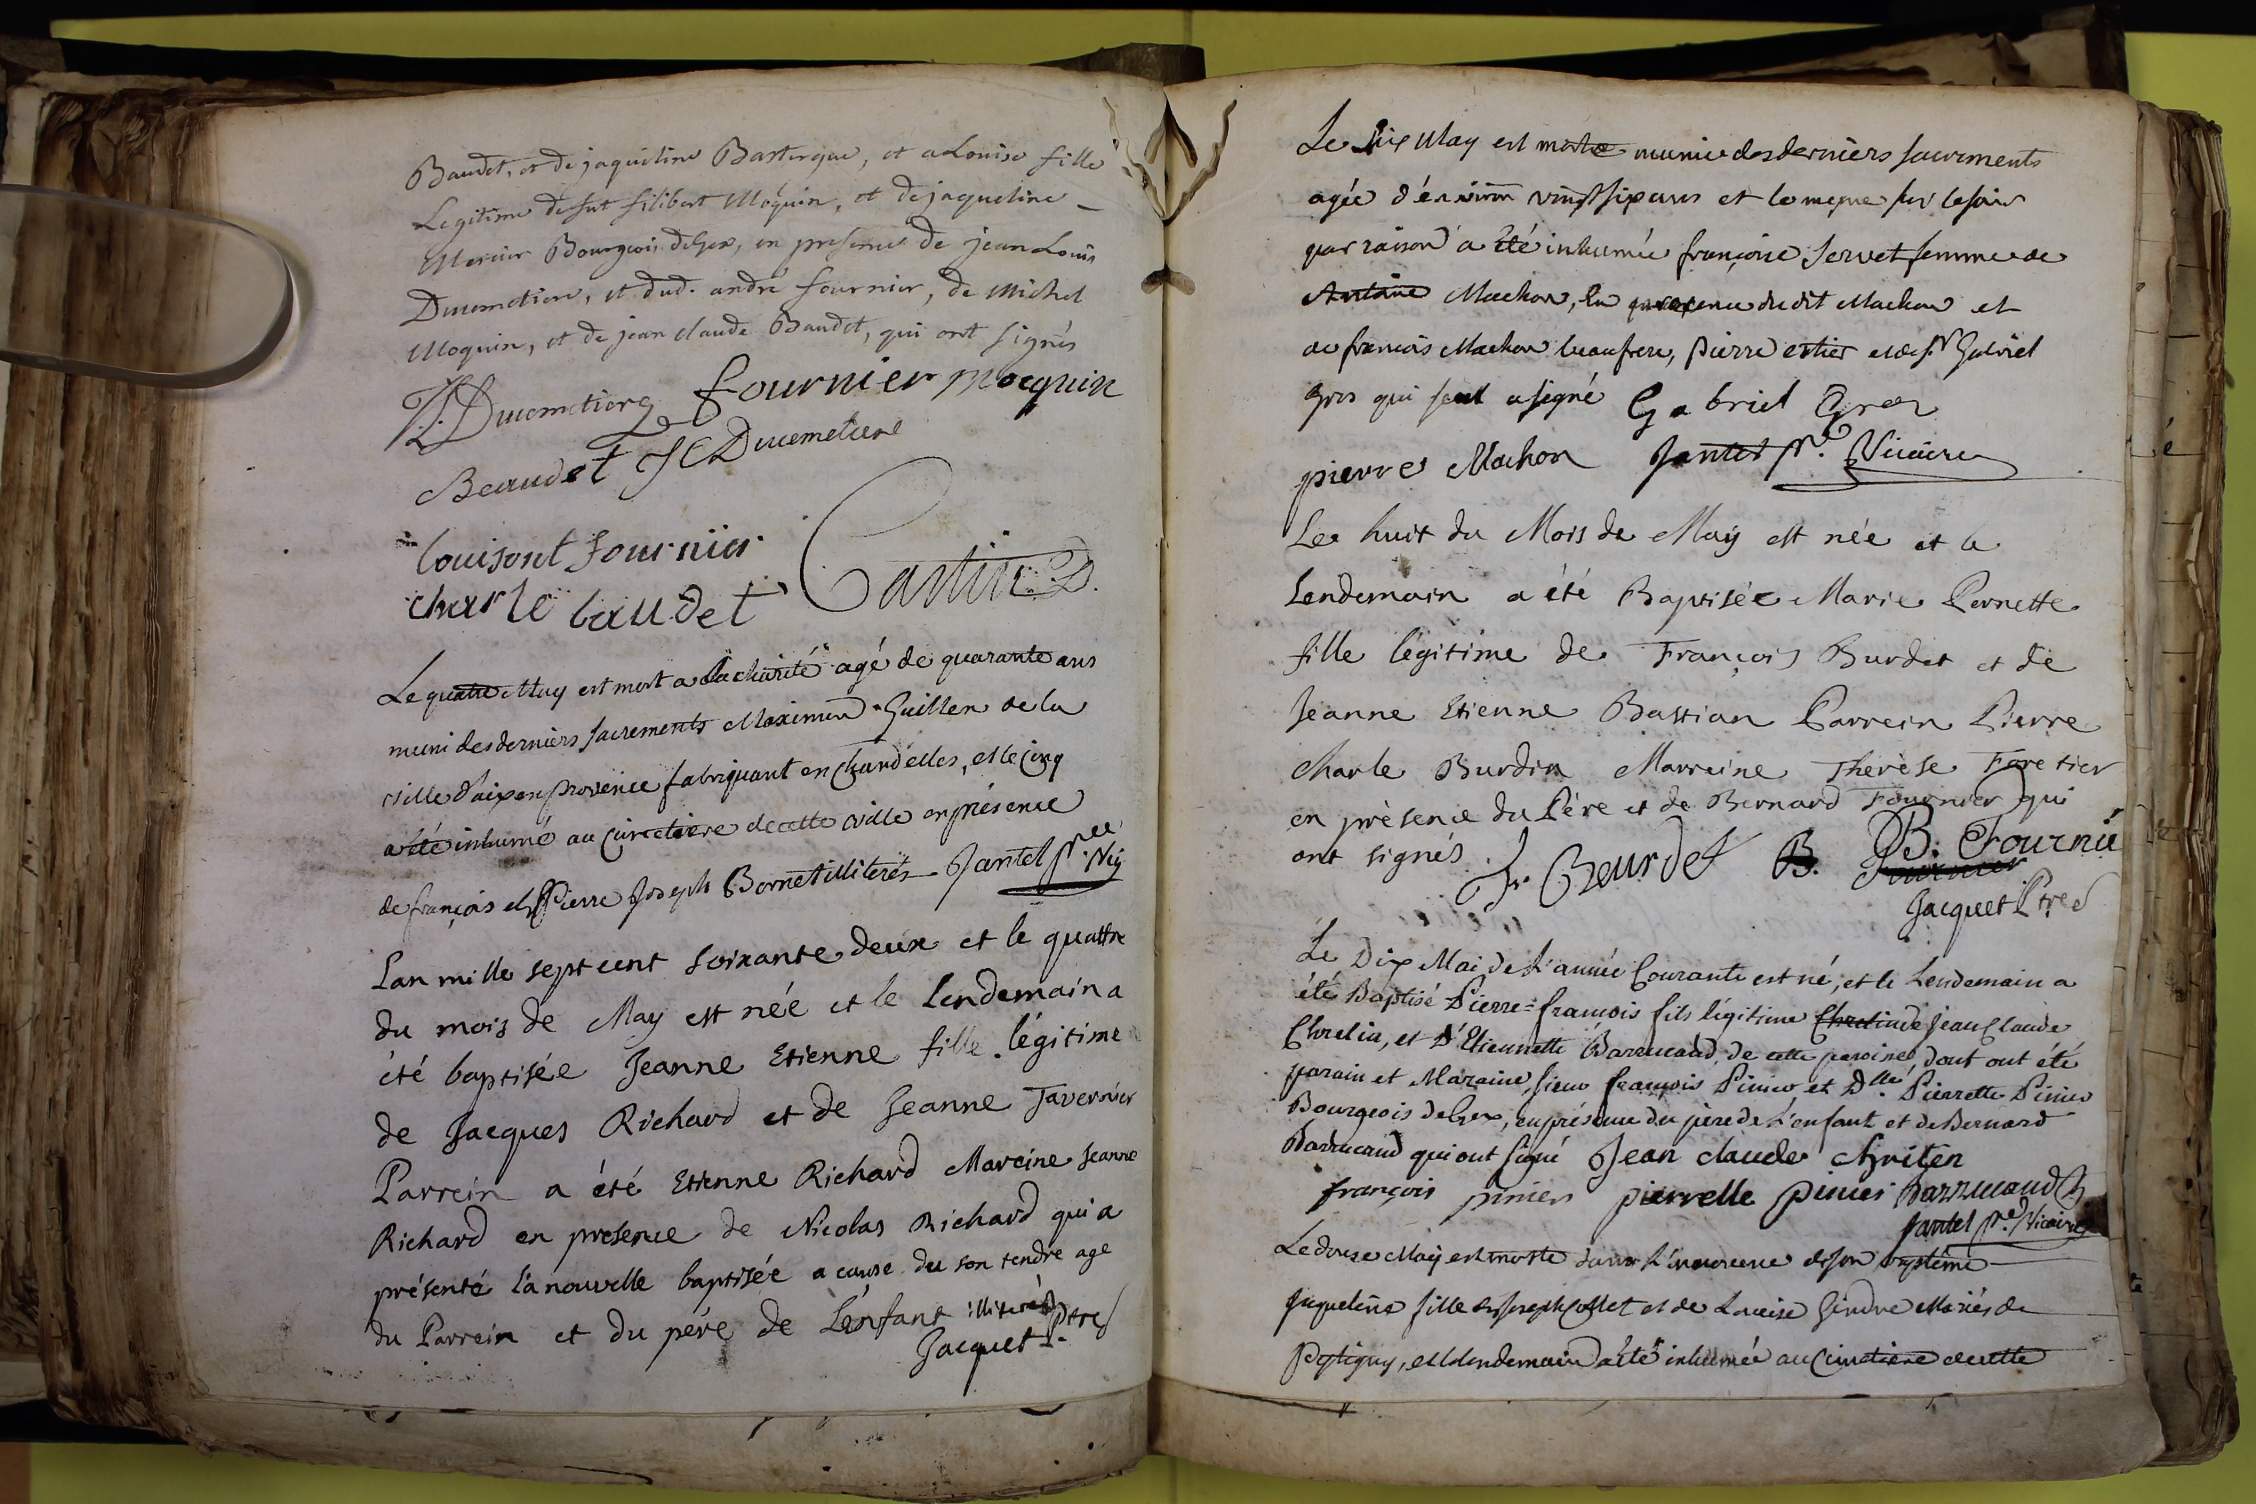 Baudet, et de jaqueline Bastergue, et a Louise fille
Legitime de fut filibert Moquin, et de jaqueline
Mercier Bourgeois de Gex, en presence de jean Louis
Ducometiere, et dud. andré fournier, de Michel
Moquin, et de jean claude Baudet, qui ont signés
Ducimetiere fournier moquin
Beaudet JC Ducemetiere
louisont fournier
Castin
charle baudet
Le quatre May est mort a la charité agé de quarante ans
muni des derniers sacrements Maximin Guillen de la
ville d'aix en provence fabriquant en chandelles, et le cinq
a été inhumé au cimetiere de cette ville en présence
de françois et Pierre Joseph Bornet illiterés Jantet ptre Vic
Lan mille sept cent soixante deux et le quattre
du mois de May est née et le lendemain a
été baptisée Jeanne Etienne fille légitime
de Jacques Richard et de Jeanne Tavernier
Parrein a été Etienne Richard Mareine Jeanne
Richard en presence de Nicolas Richard qui a
présenté la nouvelle baptisée a cause du son tendre age
du Parrein et du pére de L'enfant illiterés
Jacquet Ptre
Le six May est morte munie des derniers sacrements
agée d'environ vingt six ans et le meme sur le soir
par raison a été inhumée françoise Servet femme de
Antoine Machon, en presence dudit Machon et
de francois Machon beaufrere, pierre estier et de Sr Gabriel
gros qui seul a signé Gabriel Gros
pierre Machon Jantet ptre Vicaire
Le huit du Mois de May est née et le
Lendemain a été Baptisée Marie Pernette
fille légitime de François Burdet et de
Jeanne Etienne Bastian Parrein Pierre
charle Burdin Marreine Therèse Foretier
en prèsence du Père et de Bernard Fournier qui
ont signés. fr. Beurdet B. B. Fournié
Fournier
Jacquet Ptre
Le Dix Mai de L'année Courante est né, et le Lendemain a
été Baptisé Pierre=francois fils légitime Chretin de Jean Claude
Chretin, et d'Etiennette Barrucand de cette paroisse dont ont été
parain et Maraine, sieur françois Pinier et Dlle. Pierrette Pinier
Bourgeois de Gex, en présence du père de L'enfant et de Bernard
Barrucand qui ont signé Jean claude chriten
françois pinier pierrette pinier Barrucand
Jantet ptre Vicaire
Le douse May est morte dans l'innocence de son baptême
jaqueline fille de joseph Collet et de Louise Gindre Mariés de
Pitigny, et le lendemain a été inhumée au Cimetiere de cette